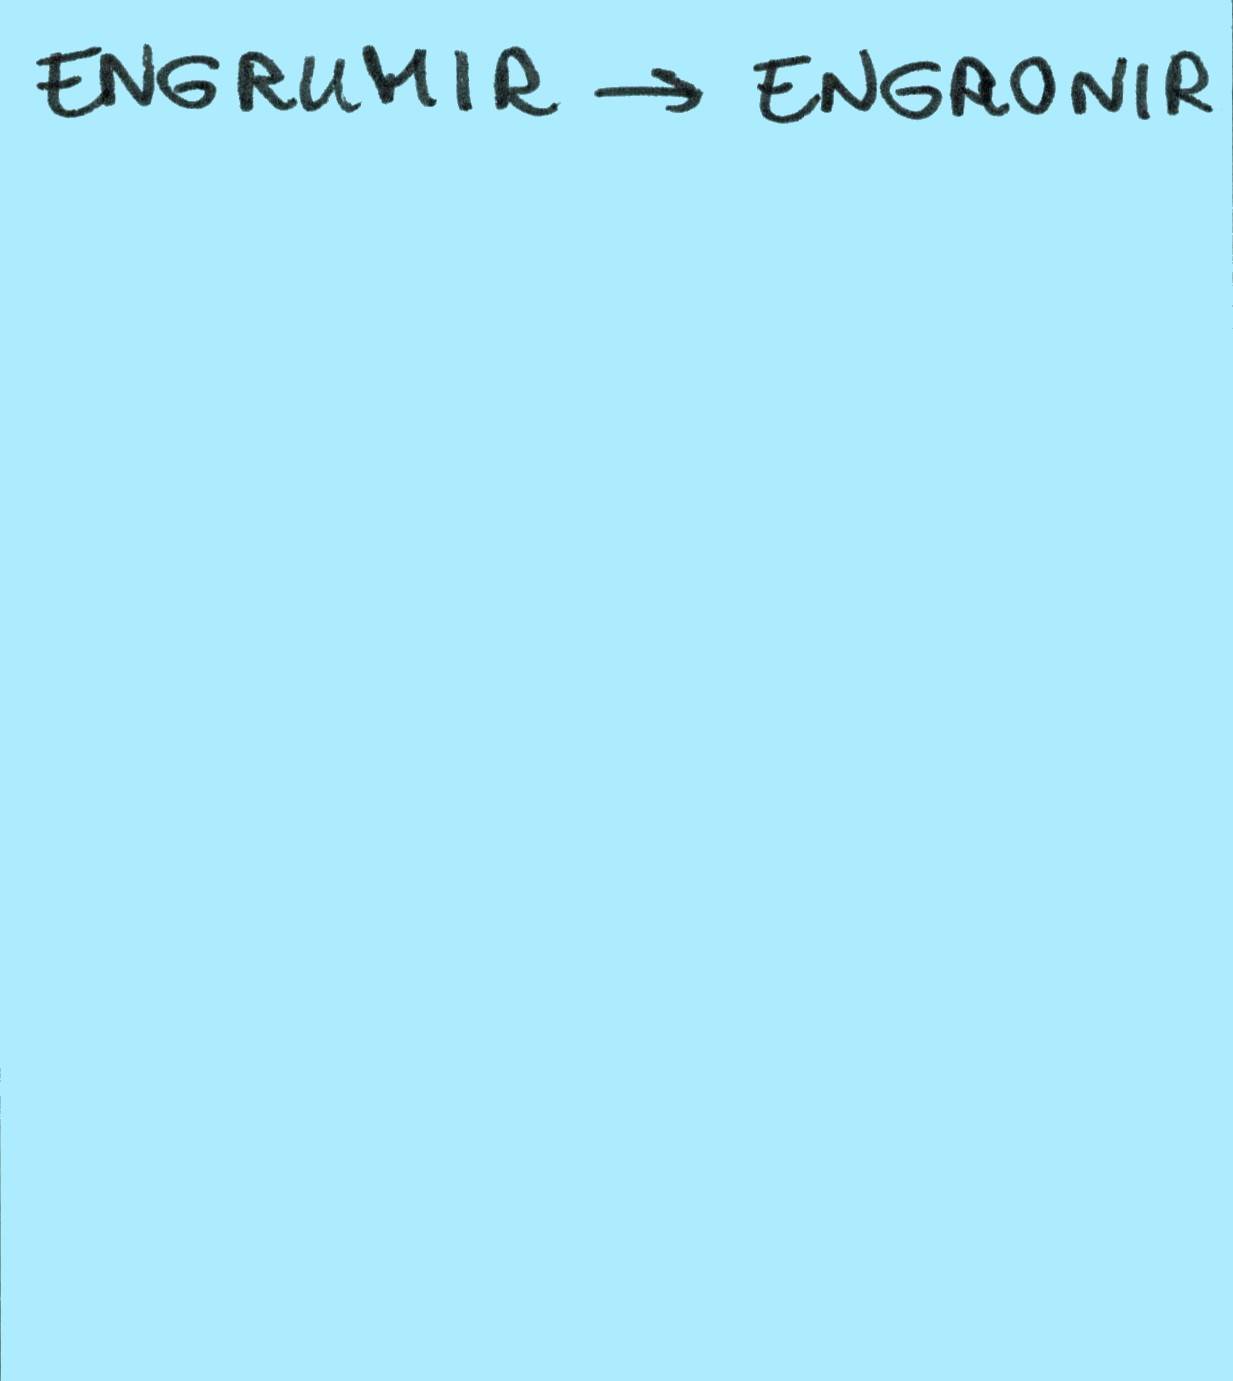 ENGRUMIR → ENGRONIR